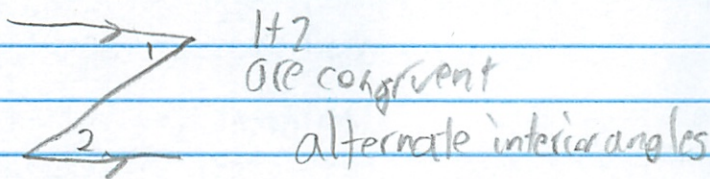 1+2
are congruent
1
2
alternate interior angles